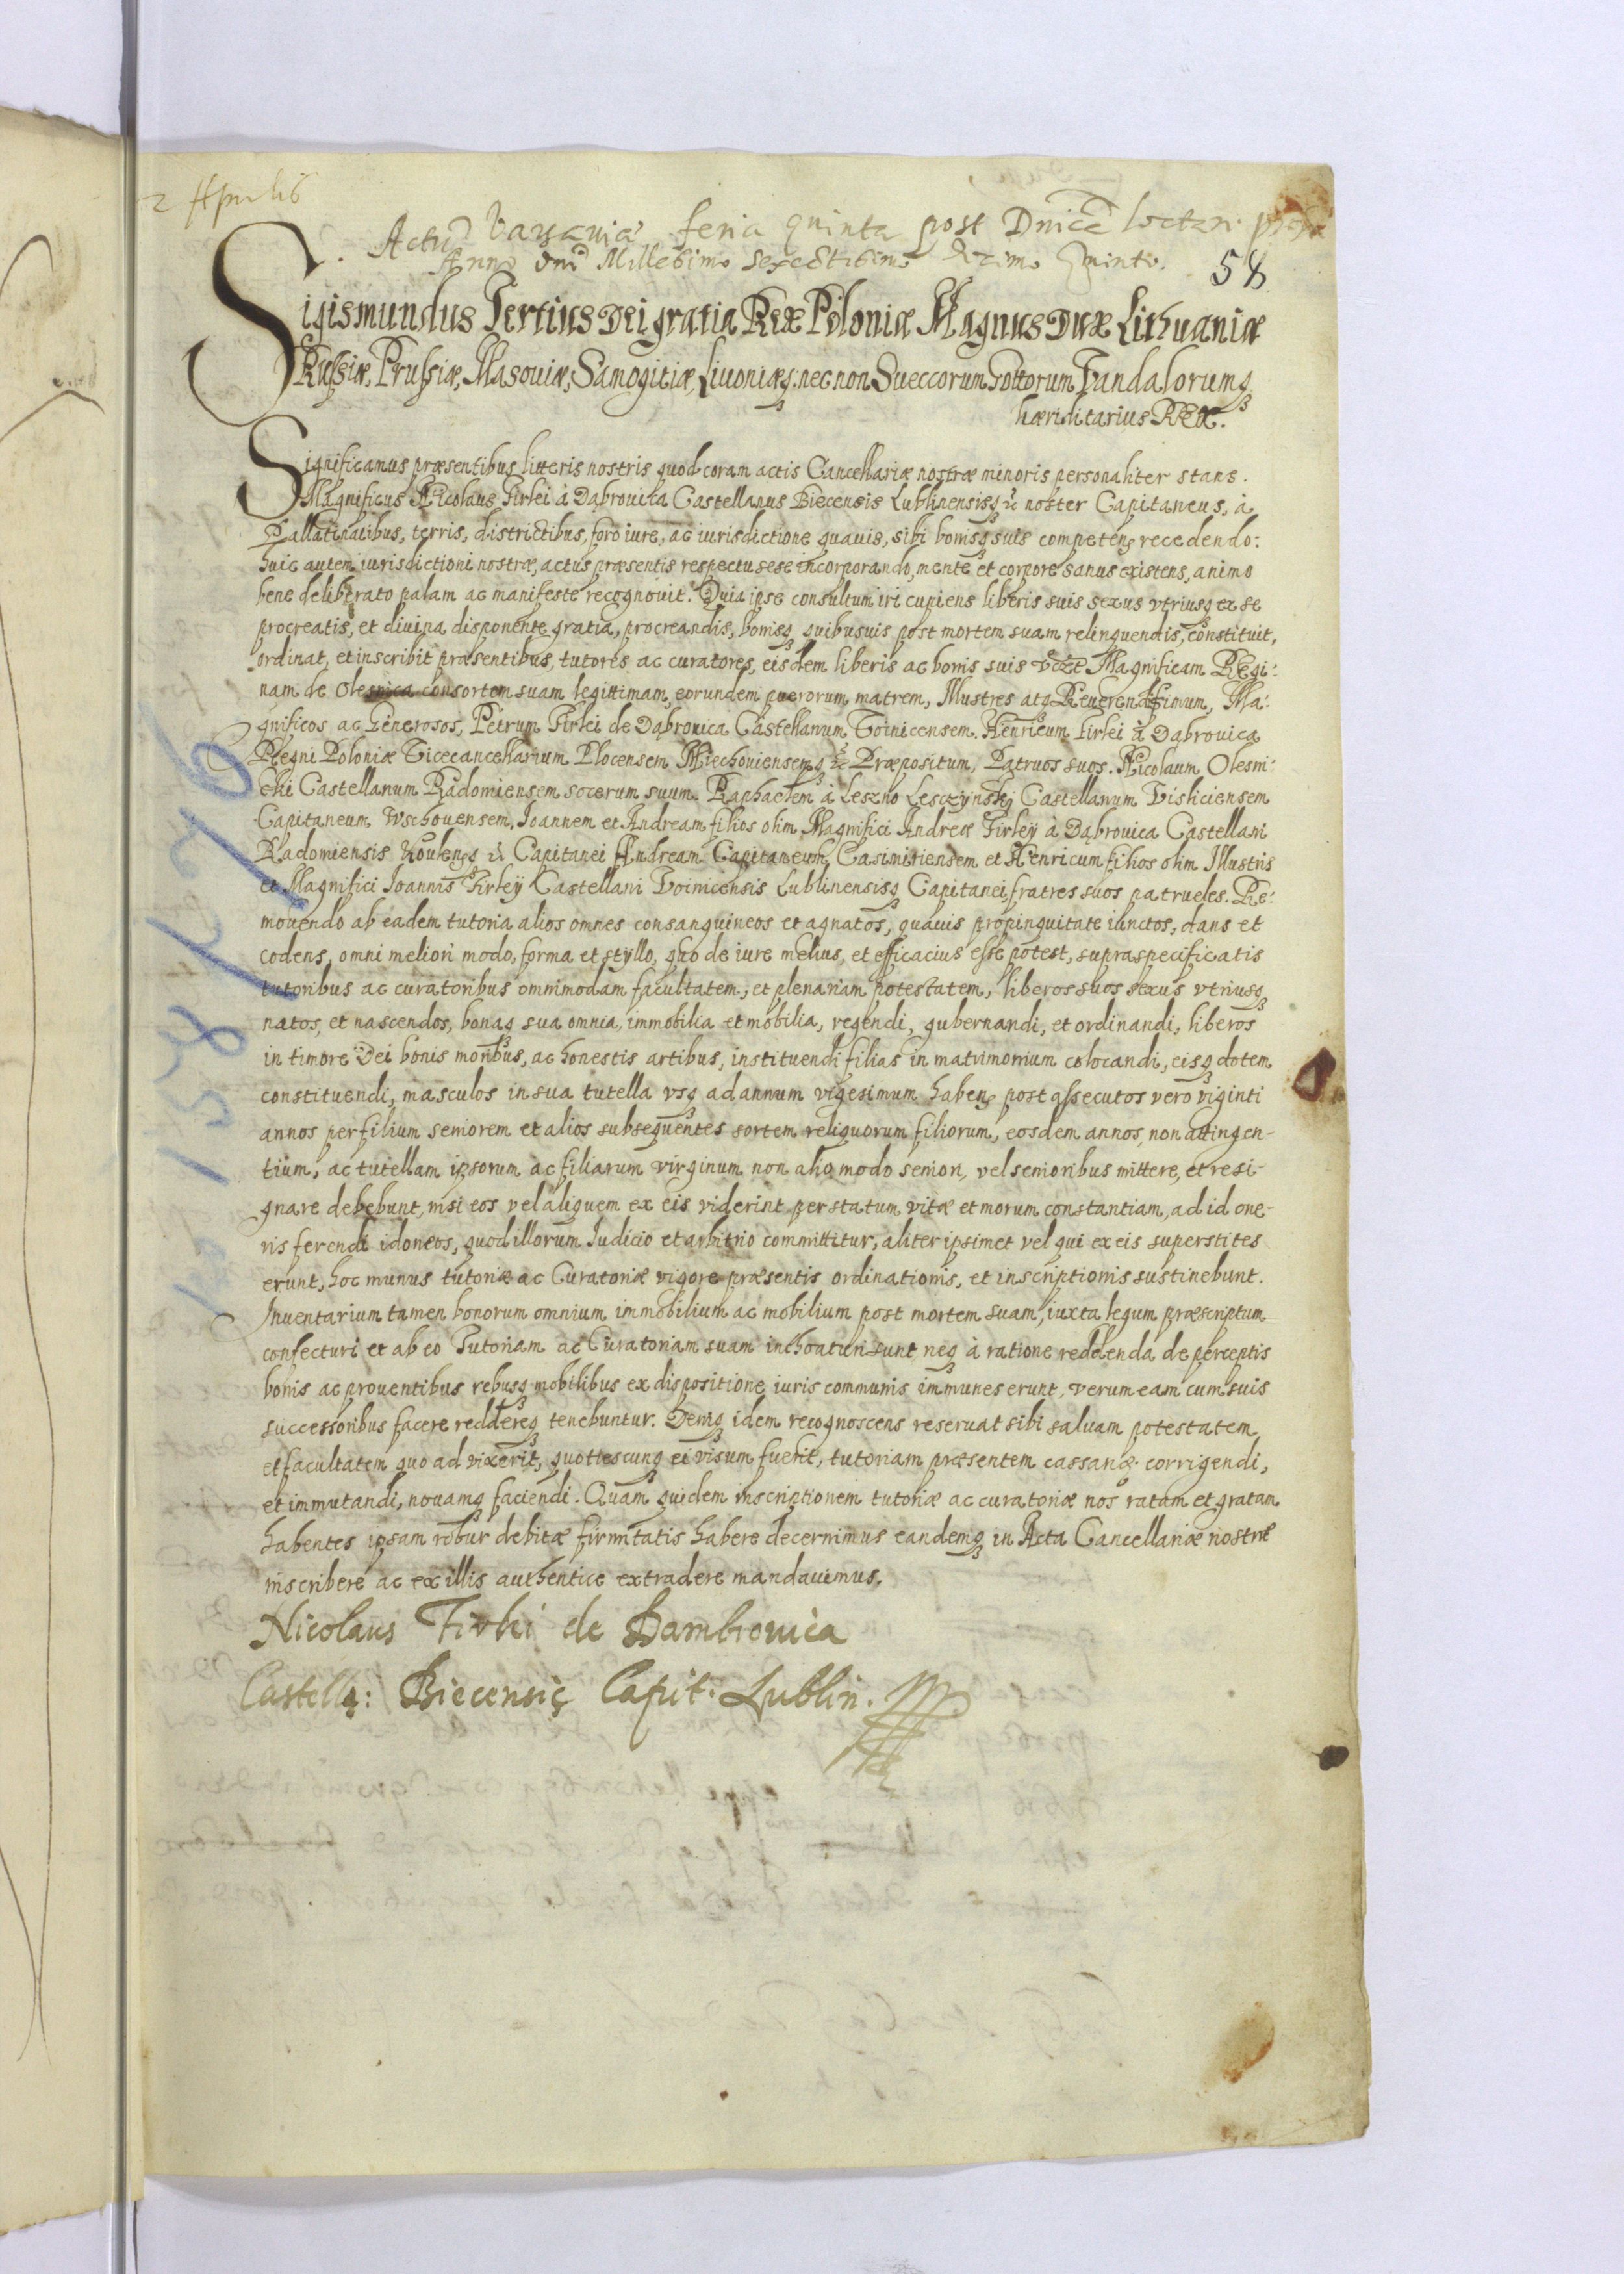 2 Aprilis
Actũ Varsaviæ feria quinta post Dnicã laetar. proxa
Anno Dni Millesimo sexcentesimo decimo Quinto.
58
Sigismundus Tertius Dei gratia Rex Poloniæ Magnus Dux Lithuaniæ
Russiæ, Prussiæ, Masoviæ, Samogitiæ, Livoniæq; nec non Sveccorum Gottorum Vandalorumq;
hæriditarius Rex.
Significamus præsentibus litteris nostris quod coram actis Cancellariæ nostræ minoris personaliter stans.
Magnificus Nicolaus Firlei à Dąbrovica Castellanus Biecensis Lublinensisq; &c noster Capitaneus, à
Pallatinatibus, terris, districtibus, foro iure, ac iurisdictione quavis, sibi bonisq; suis competen: recedendo:
huic autem iurisdictioni nostræ, actus præsentis respectu sese incorporando, mente et corpore sanus existens, animo
bene deliberato palam ac manifeste recognovit. Quia ipse consultum iri cupiens liberis suis sexus vtriusq; ex se
procreatis, et divina disponente gratia, procreandis, bonisq; quibusvis post mortem suam relinquendis, constituit,
ordinat, et inscribit præsentibus, tutores ac curatores, eisdem liberis ac bonis suis Magnificam Regi:
nam de Olesnica consortem suam legittimam, eorundem puerorum matrem, Illustres atq; Reverendissimum, Ma:
gnificos ac Generosos, Petrum Firlei de Dąbrovica Castellanum Voinicensem. Henricum Firlei à Dąbrovica
Regni Poloniæ Vicecancellarium Plocensem Miechoviensemq; &c Præpositum, Patruos suos. Nicolaum Olesni:
cki Castellanum Radomiensem socerum suum. Raphaelem à Leszno Lesczynskij Castellanum Visliciensem
Capitaneum Wschovensem, Ioannem et Andream filios olim Magnifici Andreæ Firleÿ à Dąbrovica Castellani
Radomiensis Kovlen: &c Capitanei Andream Capitaneum Casimiriensem et Henricum filios olim Illustris
et Magnifici Ioannis Firleÿ Castellani Voinicensis Lublinensisq; Capitanei, fratres suos patrueles. Re:
movendo ab eadem tutoria alios omnes consanguineos et agnatos, quavis propinquitate iunctos, dans et
cedens, omni meliori modo, forma et styllo, quo de iure melius, et efficacius esse potest, supraspecificatis
tutoribus ac curatoribus omnimodam facultatem, et plenariam potestatem, liberos suos sexus vtriusq;
natos, et nascendos, bonaq; sua omnia, immobilia et mobilia, regendi, gubernandi, et ordinandi, liberos
in timore Dei bonis moribus, ac honestis artibus, instituendi filias in matrimonium colocandi, eisq; dotem
constituendi, masculos in sua tutella vsq; ad annum vigesimum haben: post assecutos vero viginti
annos per filium seniorem et alios subsequentes sortem reliquorum filiorum, eosdem annos, non attingen-
tium, ac tutellam ipsorum ac filiarum virginum non alio modo seniori, vel senioribus mittere, et resi-
gnare debebunt, nisi eos vel aliquem ex eis viderint per statum vitæ et morum constantiam, ad id one-
ris ferendi idoneos, quod illorum Iudicio et arbitrio committitur, aliter ipsimet vel qui ex eis superstites
erunt, hoc munus tutoriæ ac Curatoriæ vigore præsentis ordinationis, et inscriptionis sustinebunt.
Inventarium tamen bonorum omnium immobilium ac mobilium post mortem suam, iuxta legum præscriptum
confecturi et ab eo Tutoriam ac Curatoriam suam inchoaturi sunt, neq; à ratione reddenda de perceptis
bonis ac proventibus rebusq; mobilibus ex dispositione iuris communis immunes erunt, verum eam cum suis
successoribus facere reddereq; tenebuntur. Deniq; idem recognoscens reservat sibi salvam potestatem
et facultatem quo ad vixerit, quottescunq; ei visum fuerit, tutoriam præsentem cassandi corrigendi,
et immutandi, novamq; faciendi. Quam quidem inscriptionem tutoriæ ac curatoriæ nos ratam et gratam
habentes ipsam robur debitæ firmitatis habere decernimus eandemq; in Acta Cancellariæ nostræ
inscribere ac ex illis authentice extradere mandavimus.
Nicolaus Firlei de Dambrovica
Castella: Biecensis Capit: Lublin.